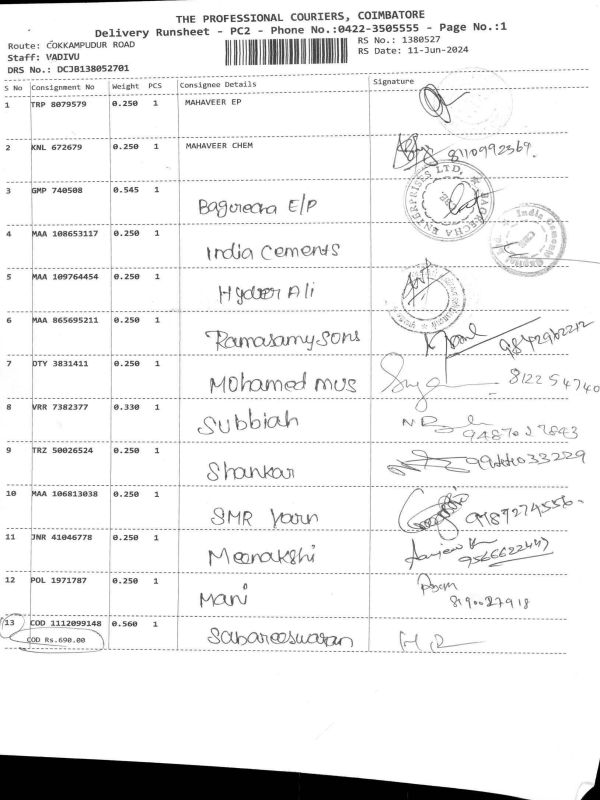 THE PROFESSIONAL COURIERS, COIMBATORE
Delivery Runsheet - PC2 - Phone No.:0422-3505555 - Page No.:1
Route: COKKAMPUDUR ROAD
RS No.: 1380527
Staff: VADIVU
RS Date: 11-Jun-2024
DRS No.: DCJB138052701
S No Consignment No Weight PCS Consignee Details Signature
1 TRP 8079579 0.250 1 MAHAVEER EP
2 KNL 672679 0.250 1 MAHAVEER CHEM 8110992369.
3 GMP 740508 0.545 1 Bagureena E/P
BAGRECHA ENTERPRISES LTD.
4 MAA 108653117 0.250 1 India Cements
India Cements
5 MAA 109764454 0.250 1 Hyder Ali
6 MAA 865695211 0.250 1 Ramasamy sons
7 DTY 3831411 0.250 1 Mohamed mus 812254740
8 VRR 7382377 0.330 1 Subbiah 9487027843
9 TRZ 50026524 0.250 1 Shankar
10 MAA 106813038 0.250 1 SMR Yarn 9787274556.
11 JNR 41046778 0.250 1 Meenakshi
12 POL 1971787 0.250 1 Mani 8190027918
13 COD 1112099148 0.560 1 Sabareeswaran
COD Rs.690.00